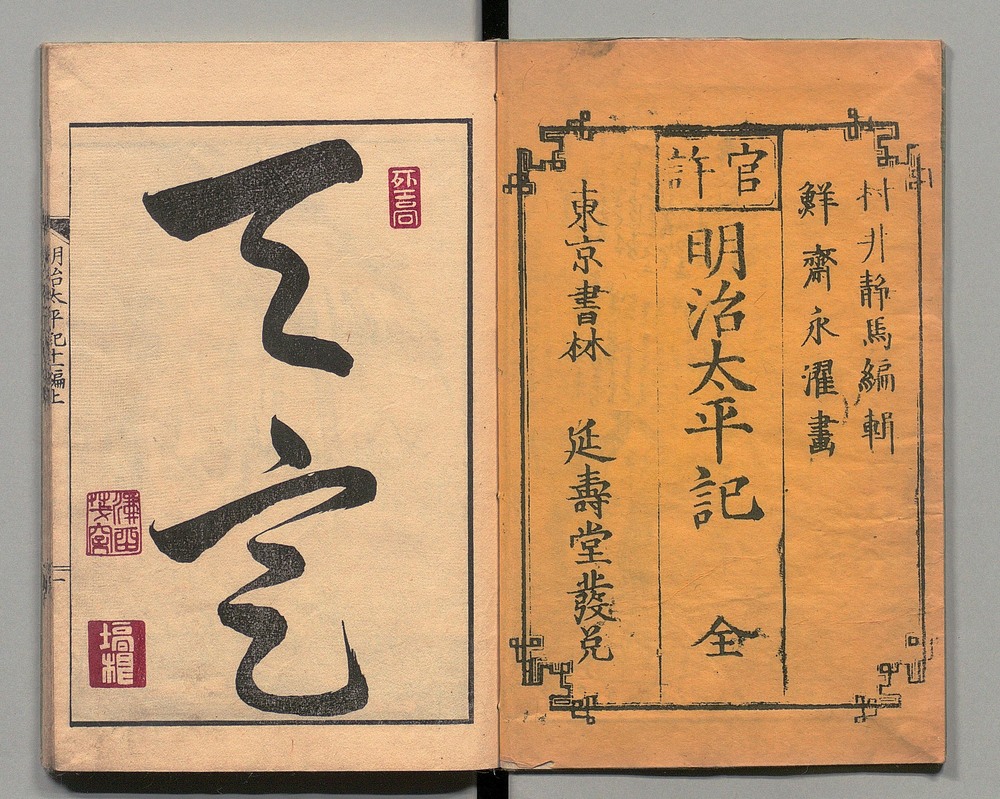 村井静馬編輯
鮮齋永濯畫
官許
明治太平記 全
東京書林 延壽堂發兌
天定
明治太平記十一編上